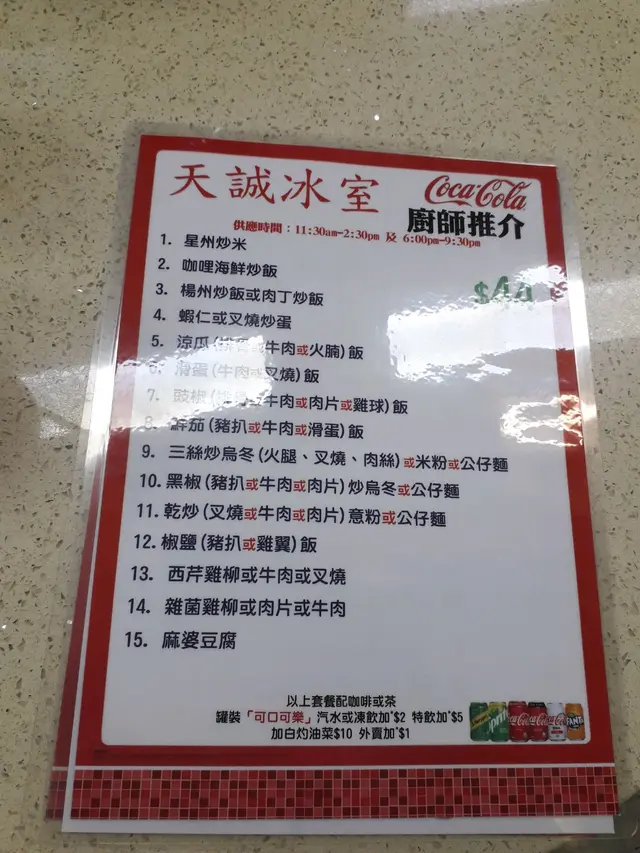 天誠冰室
Coca-Cola
廚師推介
供應時間：11:30am-2:30pm 及 6:00pm-9:30pm
$44
1. 星州炒米
2. 咖哩海鮮炒飯
3. 楊州炒飯或肉丁炒飯
4. 蝦仁或叉燒炒蛋
5. 涼瓜(排骨或牛肉或火腩)飯
6. 滑蛋(牛肉或叉燒)飯
7. 豉椒(牛肉或肉片或雞球)飯
8. 鮮茄(豬扒或牛肉或滑蛋)飯
9. 三絲炒烏冬(火腿、叉燒、肉絲)或米粉或公仔麵
10. 黑椒(豬扒或牛肉或肉片)炒烏冬或公仔麵
11. 乾炒(叉燒或牛肉或肉片)意粉或公仔麵
12. 椒鹽(豬扒或雞翼)飯
13. 西芹雞柳或牛肉或叉燒
14. 雜菌雞柳或肉片或牛肉
15. 麻婆豆腐
以上套餐配咖啡或茶
罐裝「可口可樂」汽水或凍飲加$2 特飲加$5
加白灼油菜$10 外賣加$1